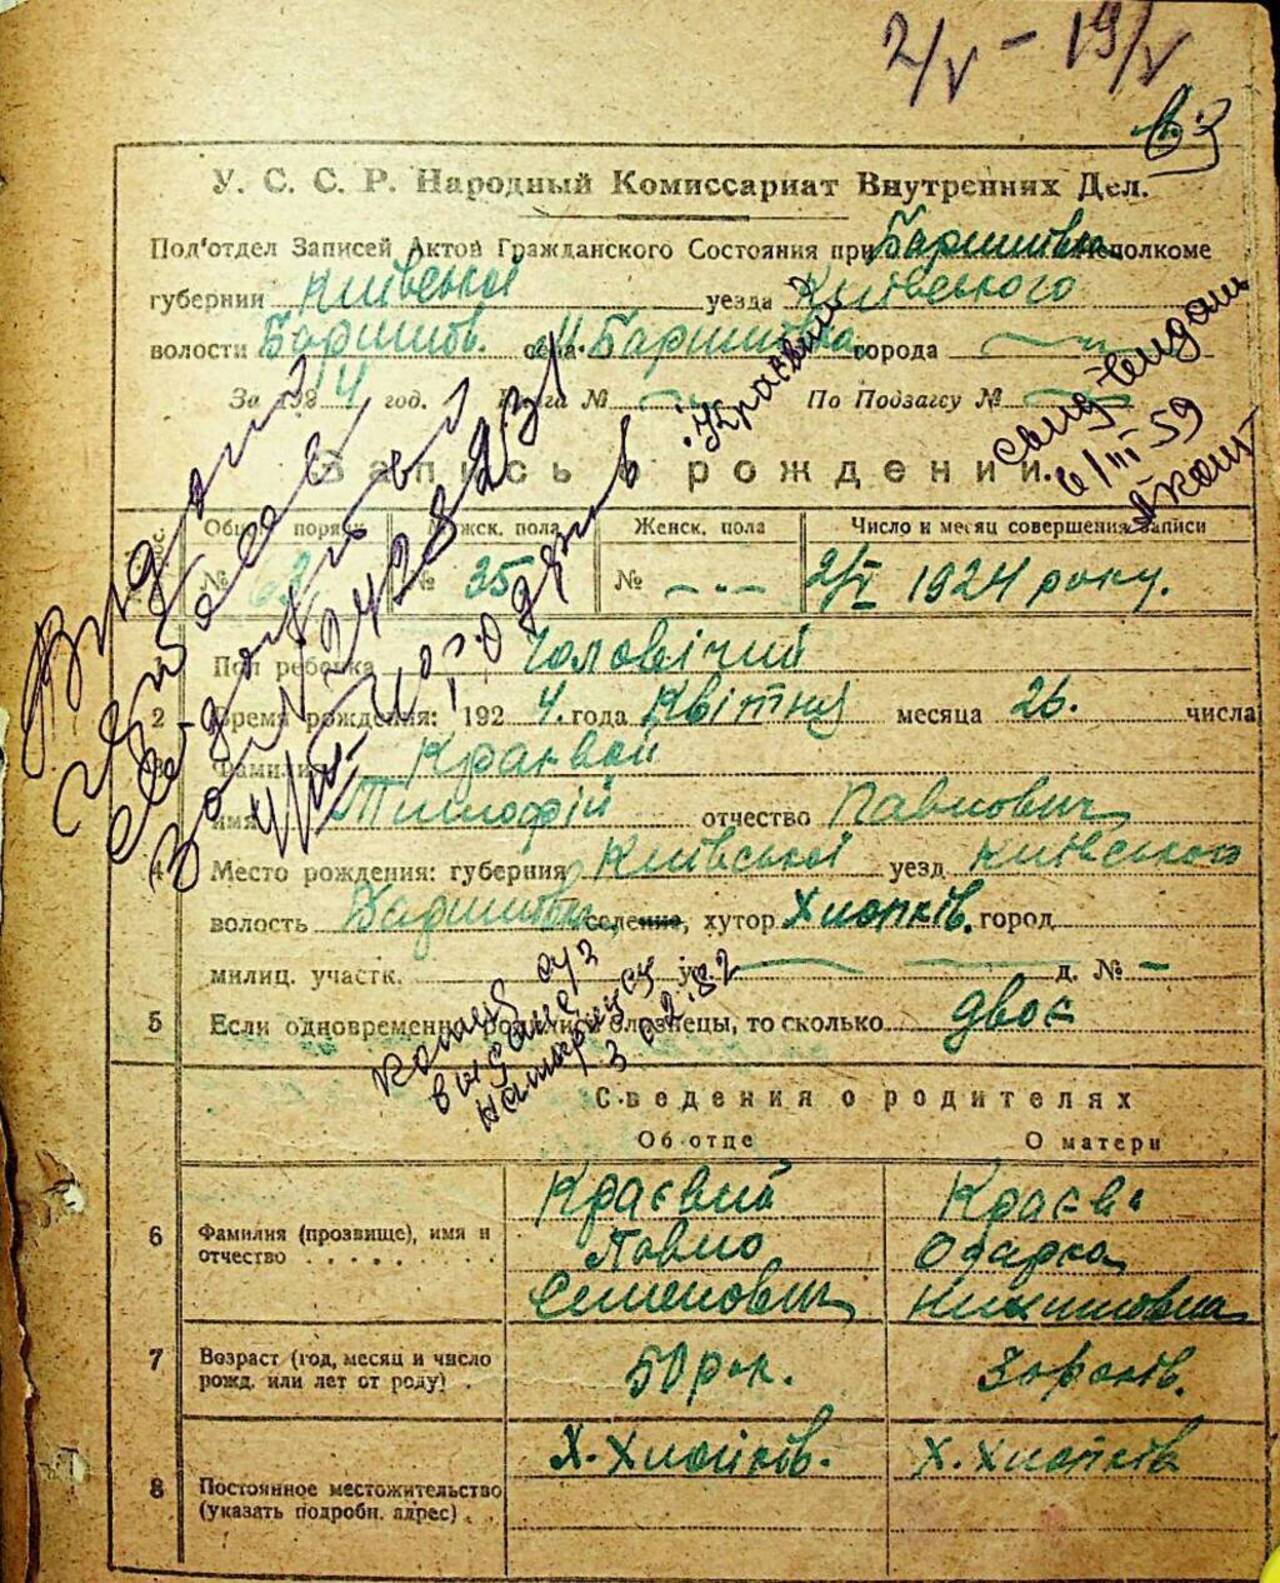 2/V - 19/V
63
У. С. С. Р. Народный Комиссариат Внутренних Дел.
Под'отдел Записей Актов Гражданского Состояния при Баришівка Исполкоме
губернии Київської уезда Київського
волости Баришів. села М. Баришівка города
За 1924 год. Книга № По Подзагсу №
Запись о рождении.
Общ. поряд. Мужск. пола Женск. пола Число и месяц совершения записи
№ 62 № 35 № 2/V 1924 року.
1 Пол ребенка Чоловічий
2 Время рождения: 1924. года Квітня месяца 26. числа
3 Фамилия Краєвой
имя Тимофій отчество Павлович
4 Место рождения: губерния Київської уезд Київського
волость Баришівка, селение, хутор Хлопків. город
милиц. участк. ул. д. № -
5 Если одновременно родились близнецы, то сколько двоє
Видано
8428231
Краєвий
свид
6/III 59
выдане
02.82
Сведения о родителях
Об отце О матери
6 Фамилия (прозвище), имя и отчество
Краєвий Краєва
Павло Одарка
Семенович Никитовна
7 Возраст (год, месяц и число рожд. или лет от роду)
50 рок.
8 Постоянное местожительство (указать подробн. адрес)
Х. Хлопків. Х. Хлопків